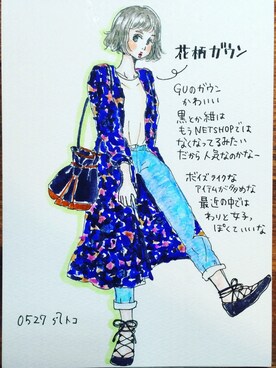 花柄ガウン
GUのガウン
かわいい
黒とか紺は
もうNETSHOPでは
なくなってるみたい
だから人気なのかなー
ボーイズライクな
アイテムが多めな
最近の中では
わりと女子っ
ぽくていいな
0527